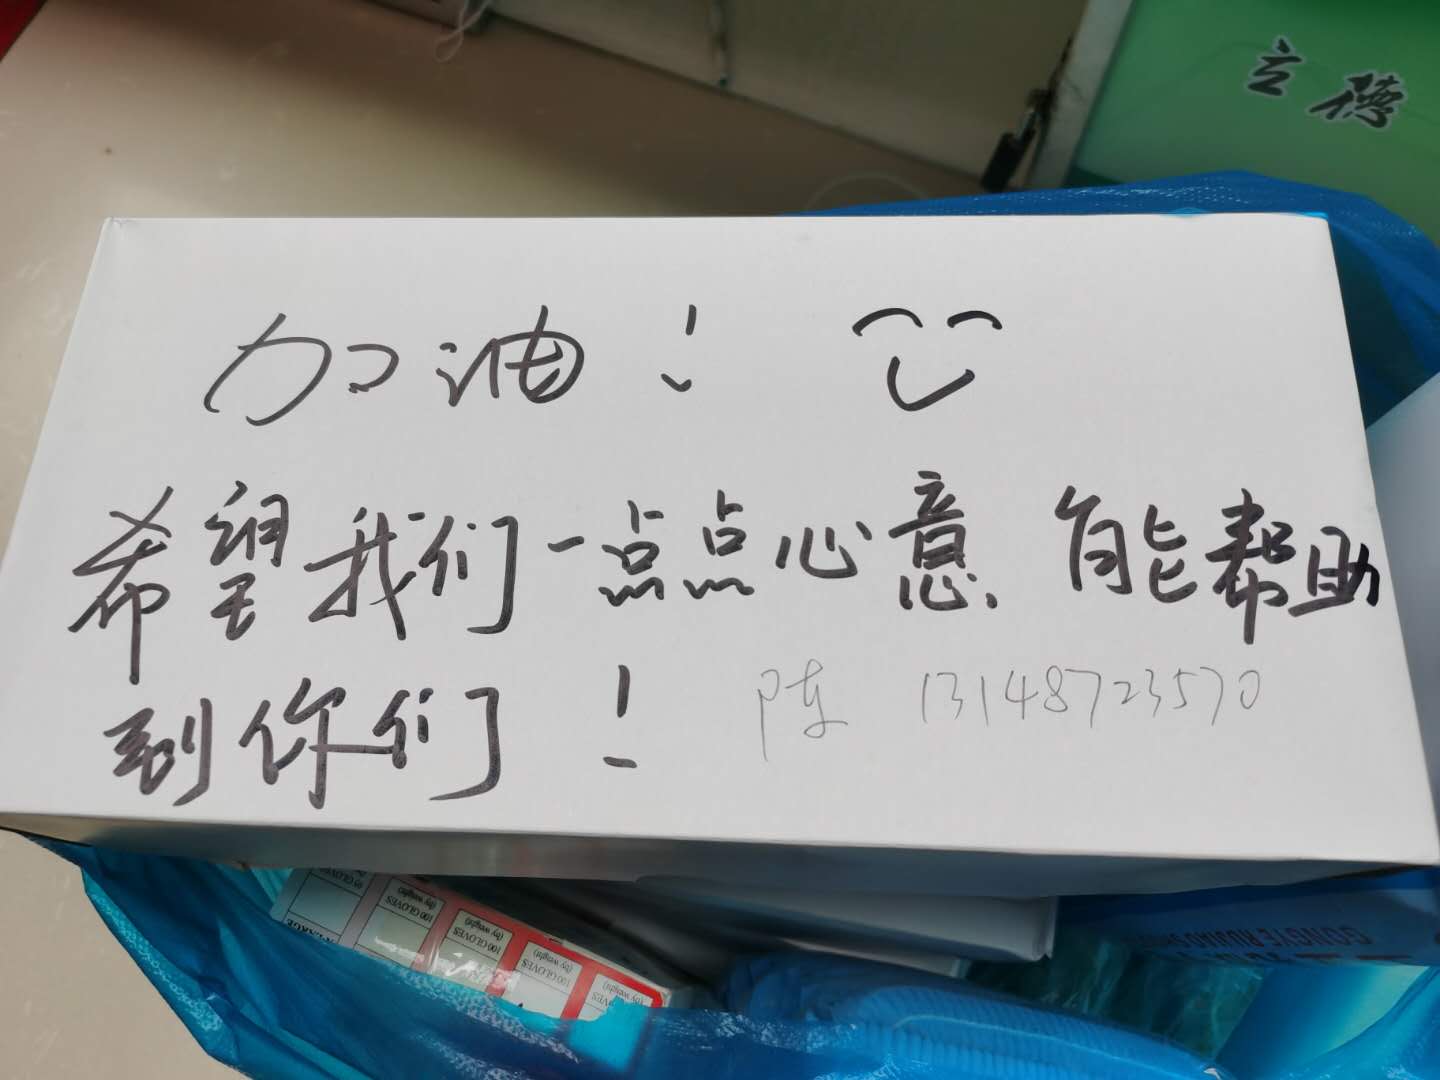 立德
加油！
希望我们一点点心意能帮助
到你们！
陈 13148723570
100 GLOVES
(by weight)
100 GLOVES
(by weight)
100 GLOVES
(by weight)
100 GLOVES
(by weight)